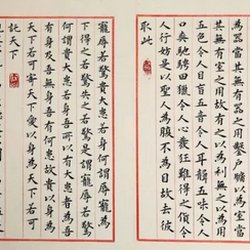 為器當其無有器之用鑿戶牖以為室當
其無有室之用故有之以為利無之以為用
五色令人目盲五音令人耳聾五味令人
口爽馳騁田獵令人心發狂難得之貨令
人行妨是以聖人為腹不為目故去彼
取此
寵辱若驚貴大患若身何謂寵辱若驚寵為
下得之若驚失之若驚是謂寵辱若驚
何謂貴大患若身吾所以有大患者為吾
有身及吾無身吾有何患故貴以身為
天下若可寄天下愛以身為天下若可
託天下